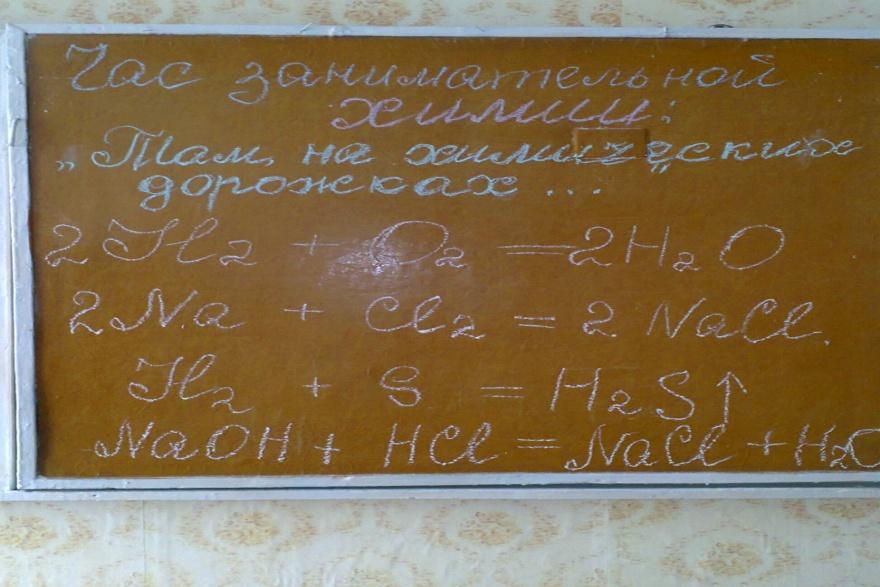 Час занимательной
химии:
„Там, на химических
дорожках ...
2H₂ + O₂ = 2H₂O
2Na + Cl₂ = 2 NaCl.
H₂ + S = H₂S↑
NaOH + HCl = NaCl + H₂O